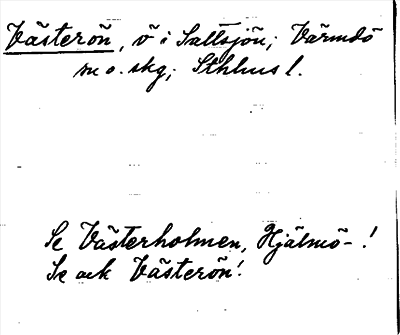 Västerön, ö i Saltsjön; Värmdö
sn o. skg; Sthlms l.
Se Västerholmen, Hjälmö- !
Se ock Västerön!